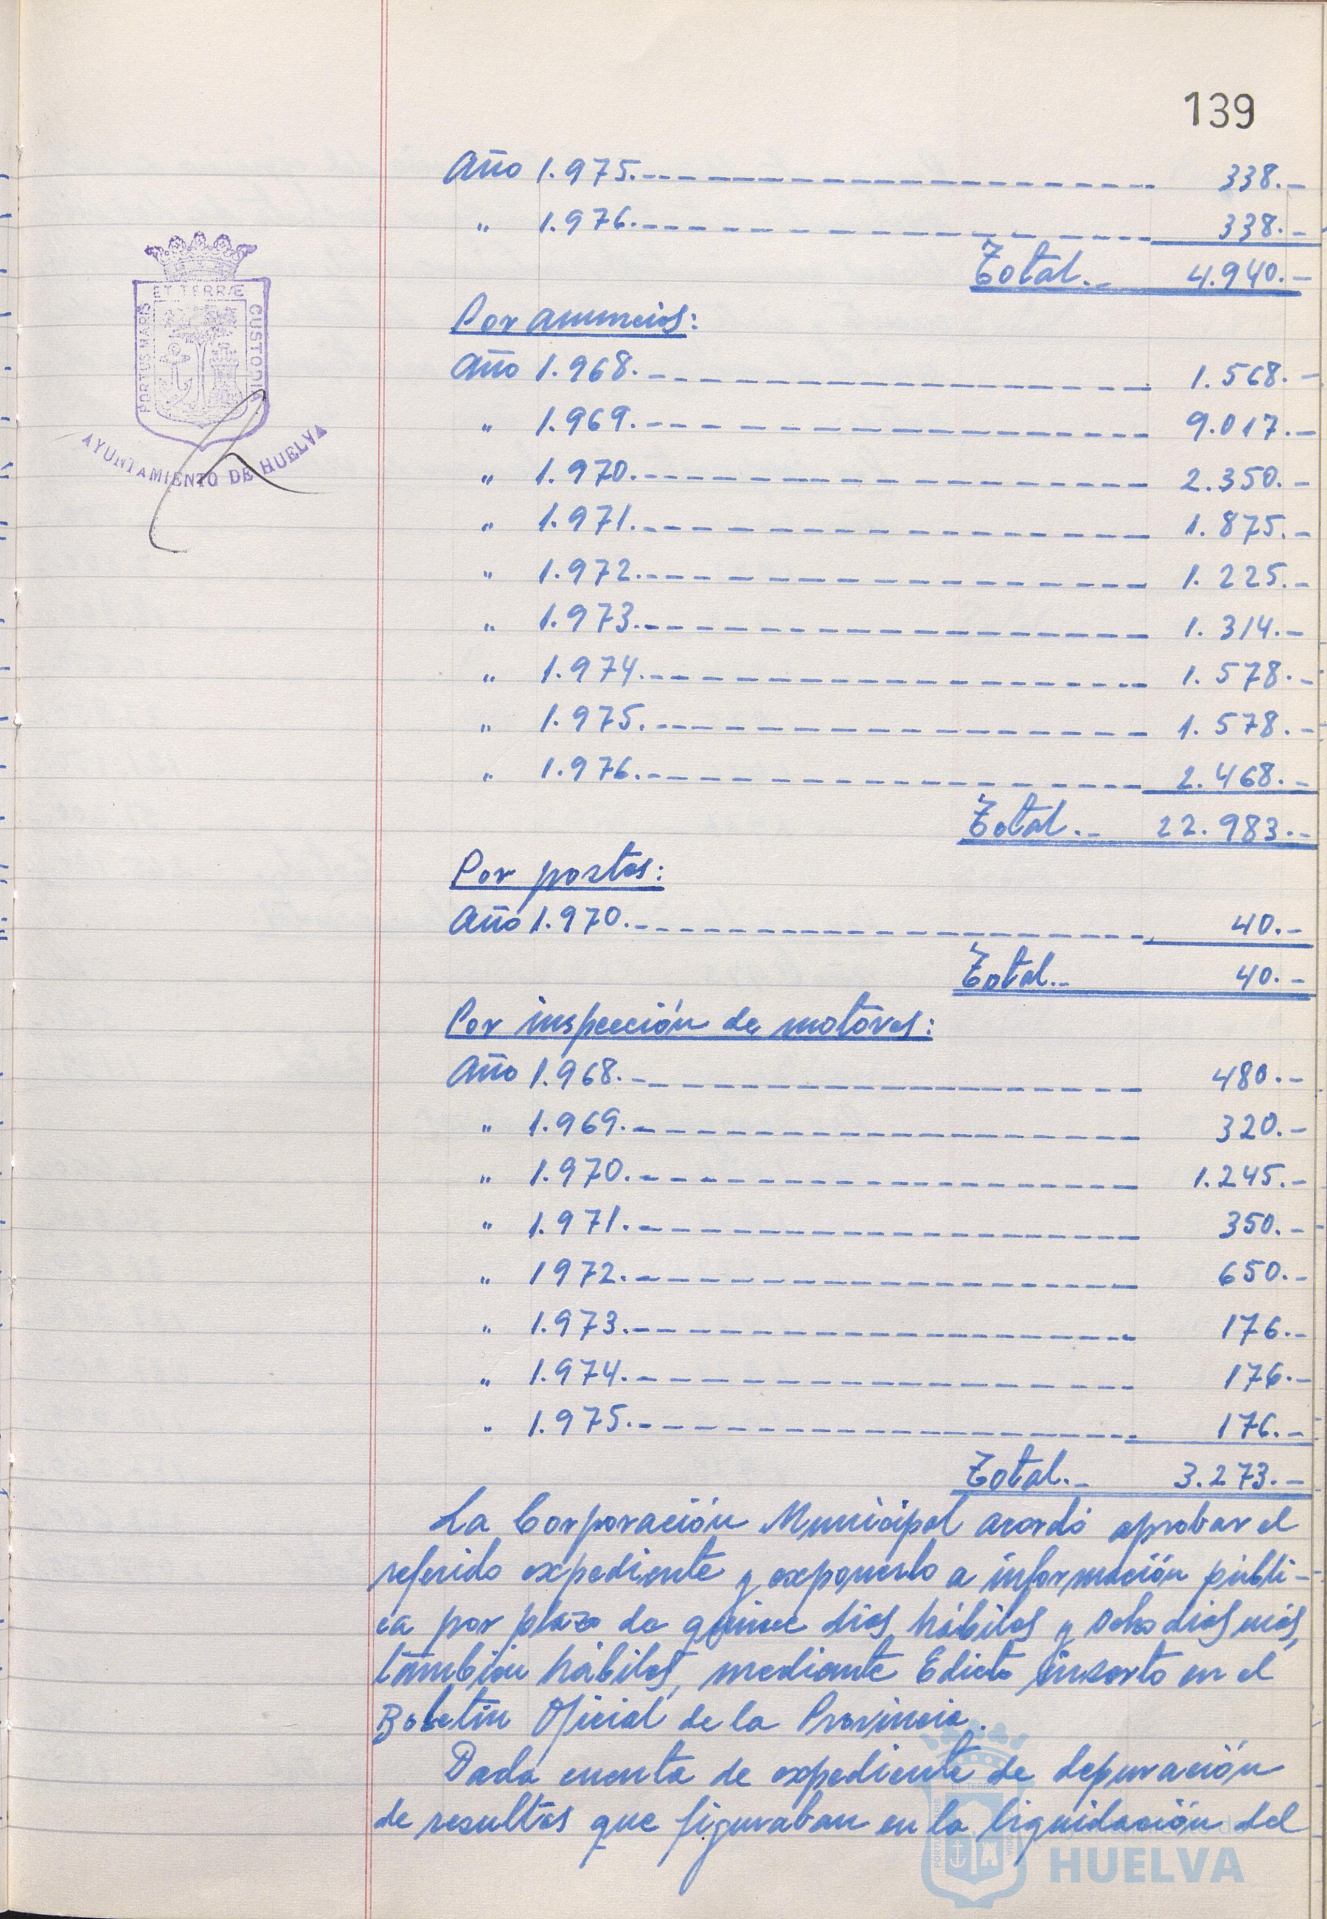 139
Año 1.975.- 338.-
" 1.976.- 338.-
Total.- 4.940.-
Por anuncios:
Año 1.968.- 1.568.-
" 1.969.- 9.017.-
" 1.970.- 2.350.-
" 1.971.- 1.875.-
" 1.972.- 1.225.-
" 1.973.- 1.314.-
" 1.974.- 1.578.-
" 1.975.- 1.578.-
" 1.976.- 2.468.-
Total.- 22.983.-
Por postes:
Año 1.970.- 40.-
Total.- 40.-
Por inspección de motores:
Año 1.968.- 480.-
" 1.969.- 320.-
" 1.970.- 1.245.-
" 1.971.- 350.-
" 1972.- 650.-
" 1.973.- 176.-
" 1.974.- 176.-
" 1.975.- 176.-
Total.- 3.273.-
La Corporación Municipal acordó aprobar el
referido expediente y exponerlo a información públi-
ca por plazo de quince días hábiles y ocho días más,
también hábiles, mediante Edicto inserto en el
Boletín Oficial de la Provincia.
Dada cuenta de expediente de depuración
de resultas que figuraban en la liquidación del
PORTUS MARIS
ET TERRÆ
CUSTODIA
AYUNTAMIENTO DE HUELVA
HUELVA